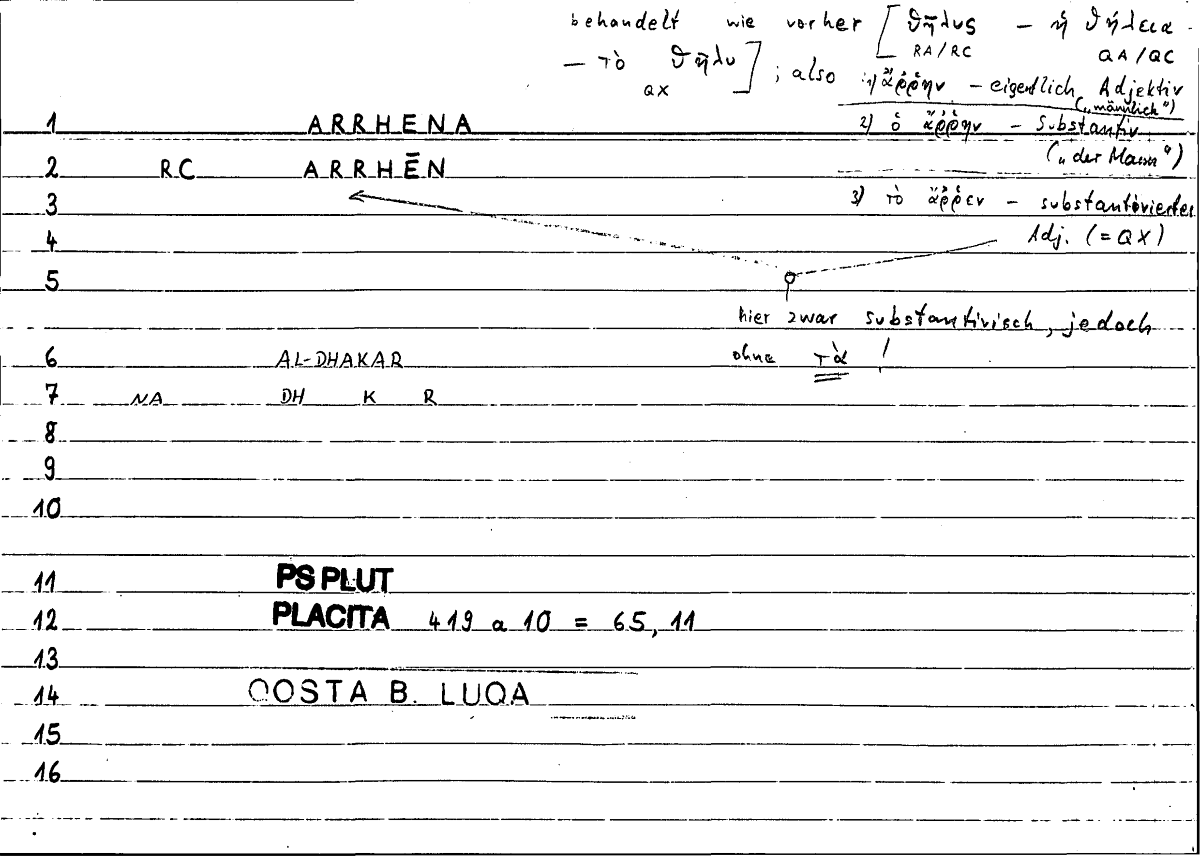 behandelt wie vorher [θῆλυς – ἡ θήλεια
RA/RC QA/QC
– τὸ θῆλυ] ; also 1) ἄῤῥην – eigentlich Adjektiv
QX
("männlich")
1 ARRHENA 2) ὁ ἄῤῥην – Substantiv
2 RC ARRHĒN ("der Mann")
3 3) τὸ ἄῤῥεν – substantiviertes
4 Adj. (= QX)
5
hier zwar substantivisch, jedoch
6 AL-DHAKAR ohne τὰ !
7 NA DH K R
8
9
10
11 PS PLUT
12 PLACITA 419 a 10 = 65, 11
13
14 QOSTA B. LUQA
15
16